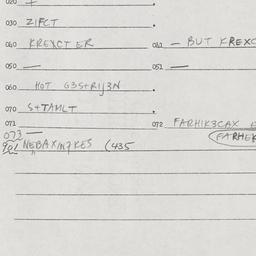 020
030 ZIFCT
040 KREXCT ER 041 - BUT KREXC
050 — 051 —
060 HOT G3S+RIJ3N
070 S+TAMLT
071 072 FARHIK3CAX
073 — (FARHEK
NEBAXIM7KES (435